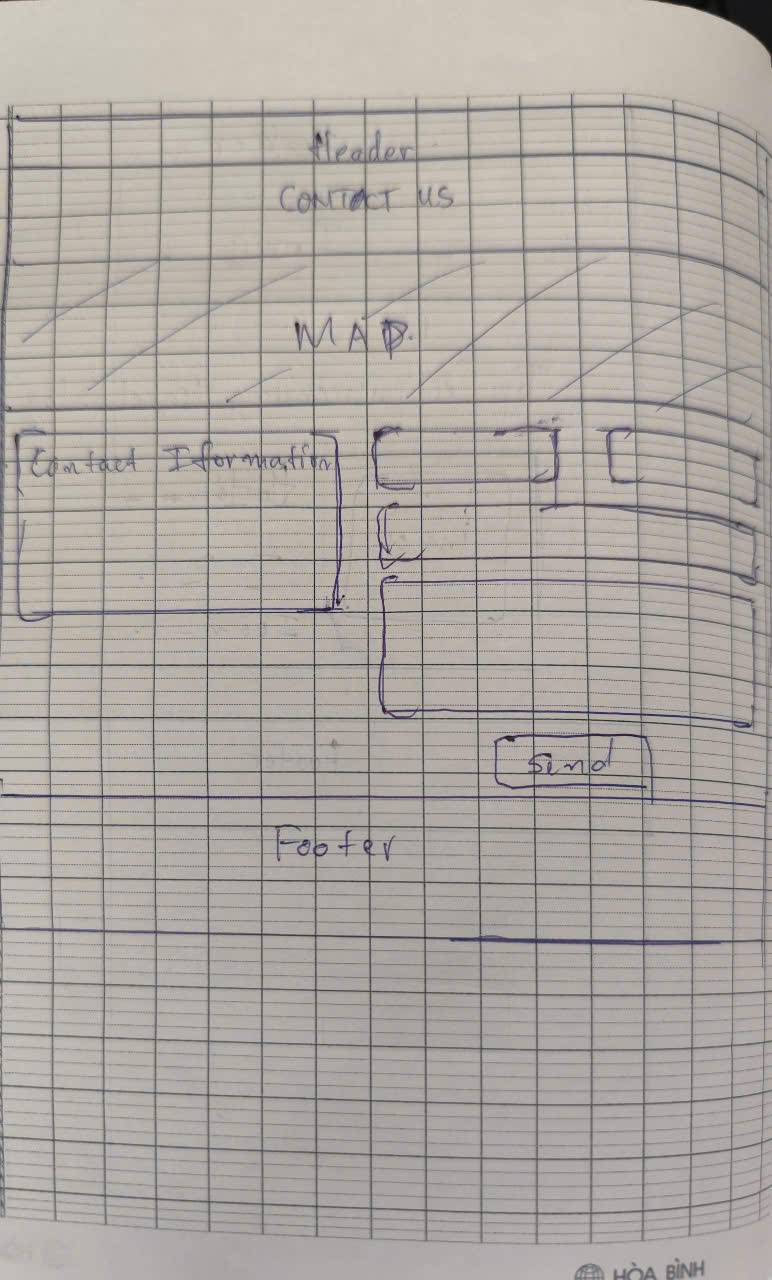 Header
CONTACT US
MAP.
Contact Iformation
Send
Footer
HÒA BÌNH